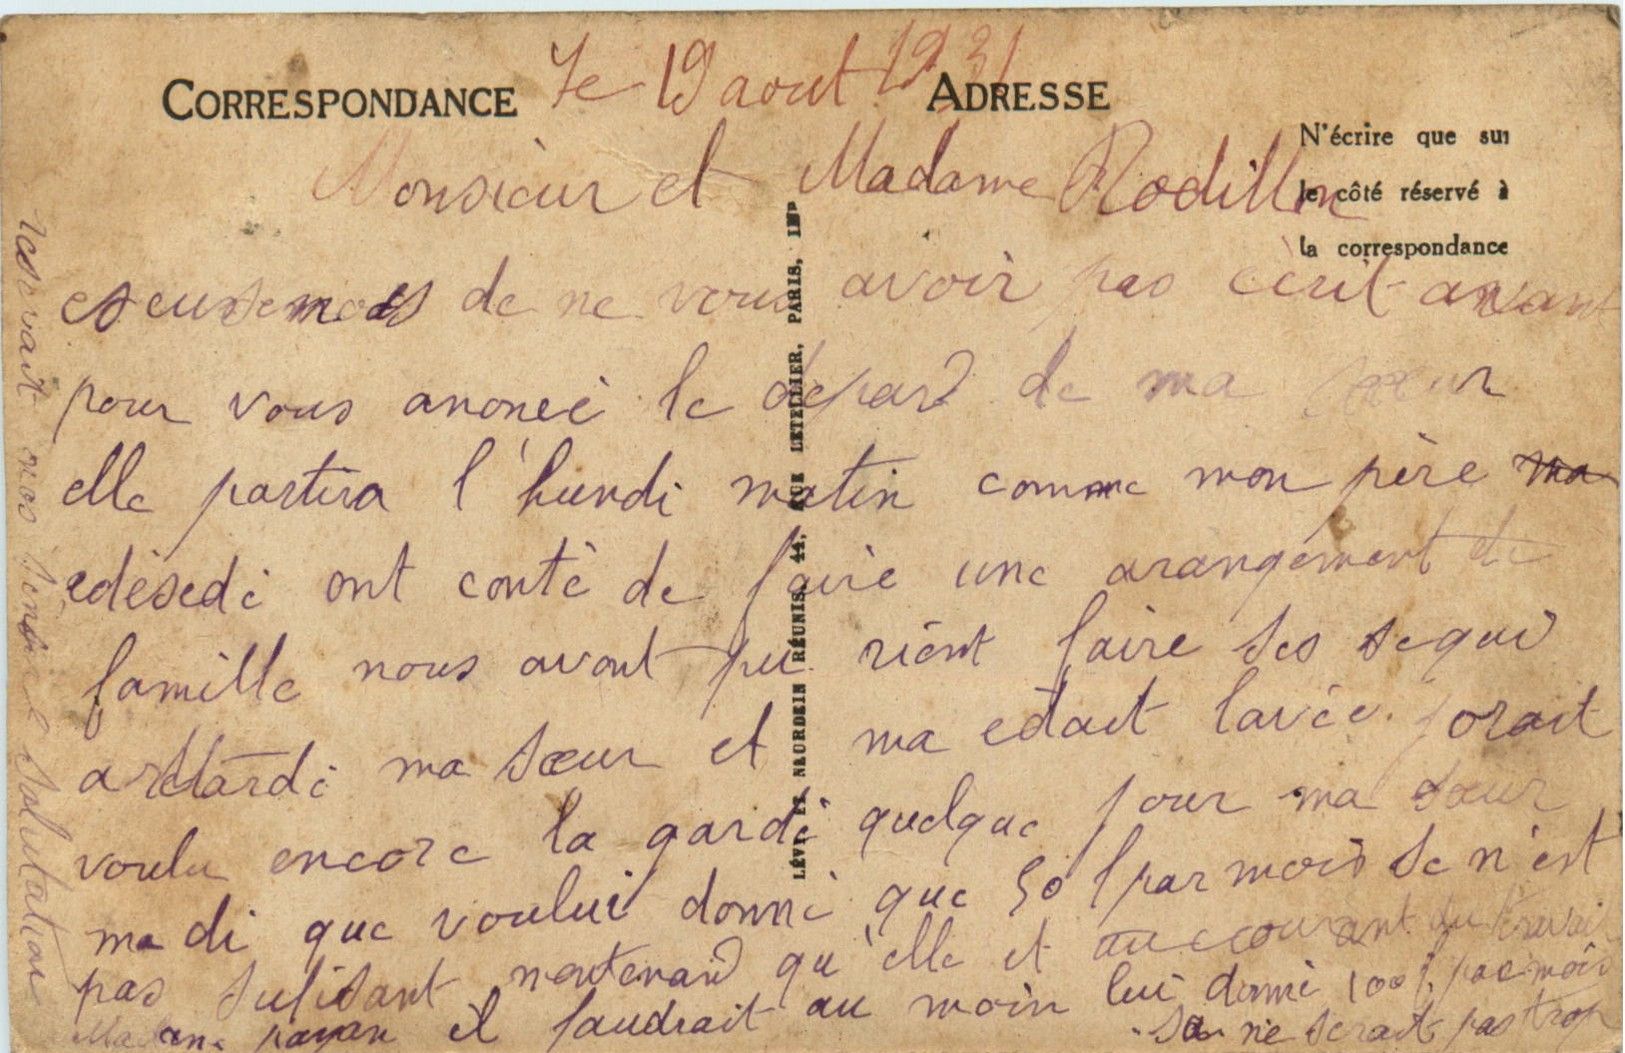 CORRESPONDANCE
le 19 aout 1931
ADRESSE
N'écrire que sur
le côté réservé à
la correspondance
Monsieur et Madame Rodillon
escusemoes de ne vous avoir pas écrit avant
pour vous anoncé le depard de ma sœur
elle partira l'hundi matin comme mon père ma
edésedé ont conté de faire une arangement de
famille nous avont pu rient faire ses sequi
a retardé ma sœur et ma edait lavée. jorait
voulu encore la gardé quelque jour ma sœur
ma di que vouluié donné que 50f par mois se n'est
pas sufisant mentenand qu'elle et au courant du travail
Madame payan il faudrait au moin lui donné 100f. par mois
sa ne serait pas trop
resevait mos salutation
LÉVY ET NEURDEIN RÉUNIS, 44, RUE LETELLIER, PARIS, IMP